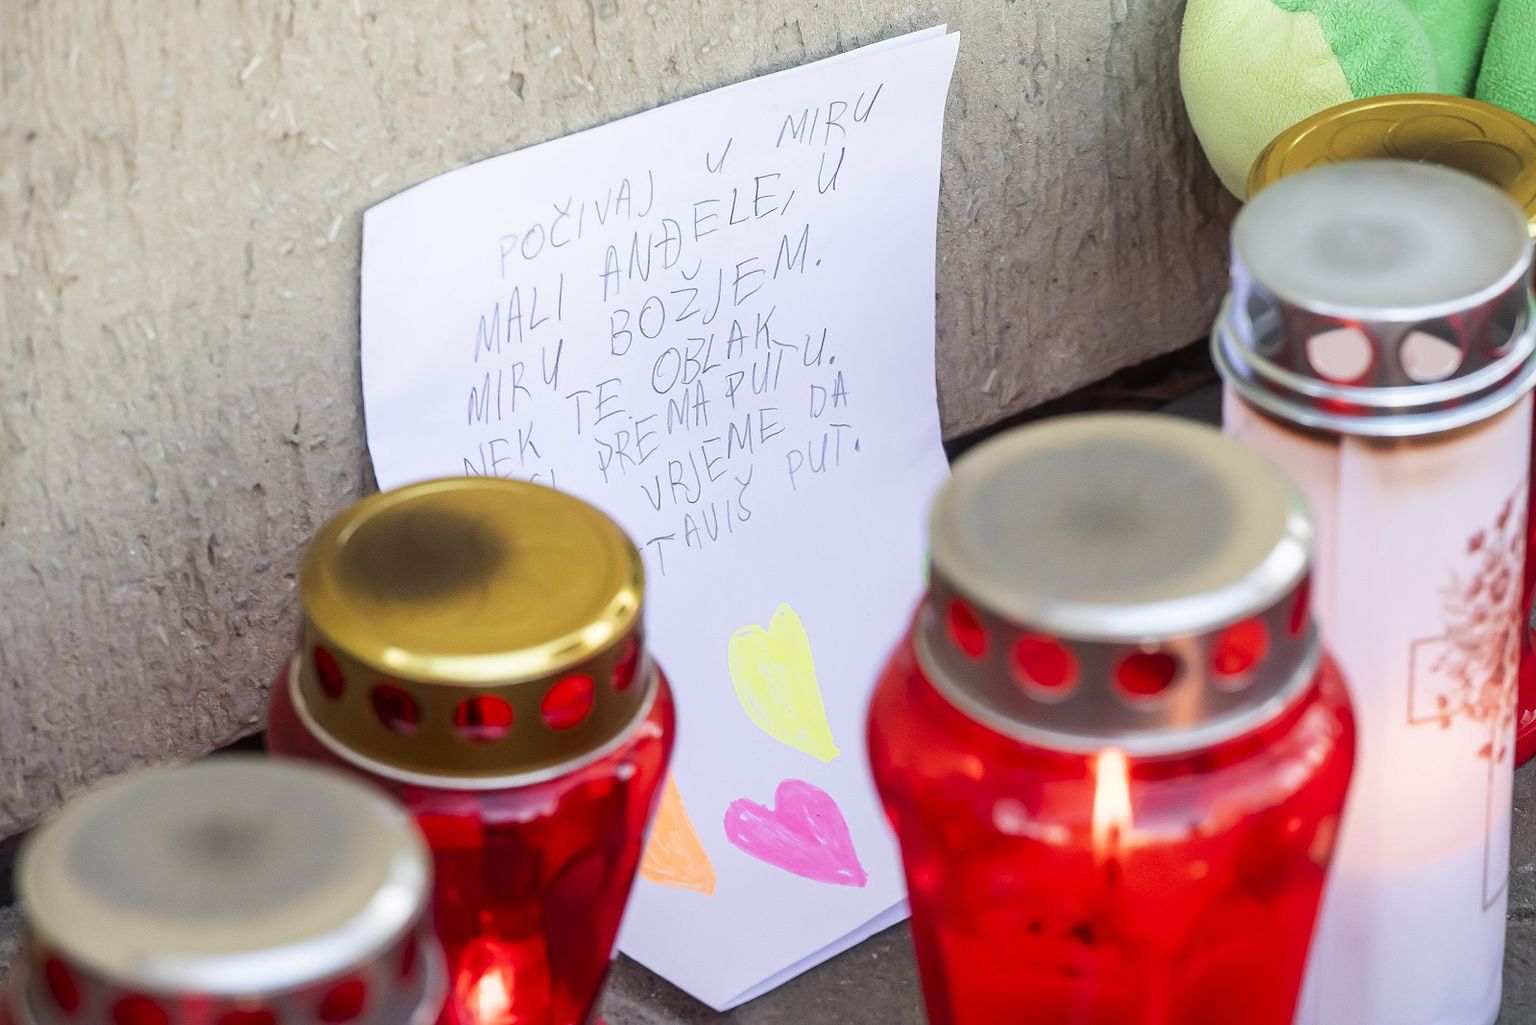 POČIVAJ U MIRU
MALI ANĐELE, U
MIRU BOŽJEM.
NEK TE OBLAK
PREMA PUTU.
VRJEME DA
PUT.